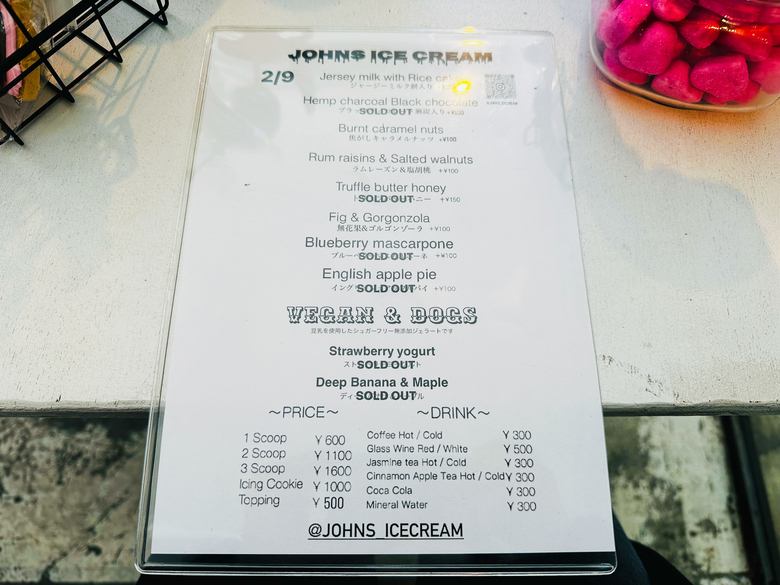 JOHNS ICE CREAM
2/9
Jersey milk with Rice
ジャージーミルク餅入り
Hemp charcoal Black chocolate
SOLD OUT
Burnt caramel nuts
焦がしキャラメルナッツ +¥100
Rum raisins & Salted walnuts
ラムレーズン&塩胡桃 +¥100
Truffle butter honey
SOLD OUT +¥150
Fig & Gorgonzola
無花果&ゴルゴンゾーラ +¥100
Blueberry mascarpone
SOLD OUT +¥100
English apple pie
SOLD OUT +¥100
VEGAN & DOGS
豆乳を使用したシュガーフリー無添加ジェラートです
Strawberry yogurt
SOLD OUT
Deep Banana & Maple
SOLD OUT
~PRICE~
1 Scoop ¥ 600
2 Scoop ¥ 1100
3 Scoop ¥ 1600
Icing Cookie ¥ 1000
Topping ¥ 500
~DRINK~
Coffee Hot / Cold ¥ 300
Glass Wine Red / White ¥ 500
Jasmine tea Hot / Cold ¥ 300
Cinnamon Apple Tea Hot / Cold ¥ 300
Coca Cola ¥ 300
Mineral Water ¥ 300
@JOHNS_ICECREAM